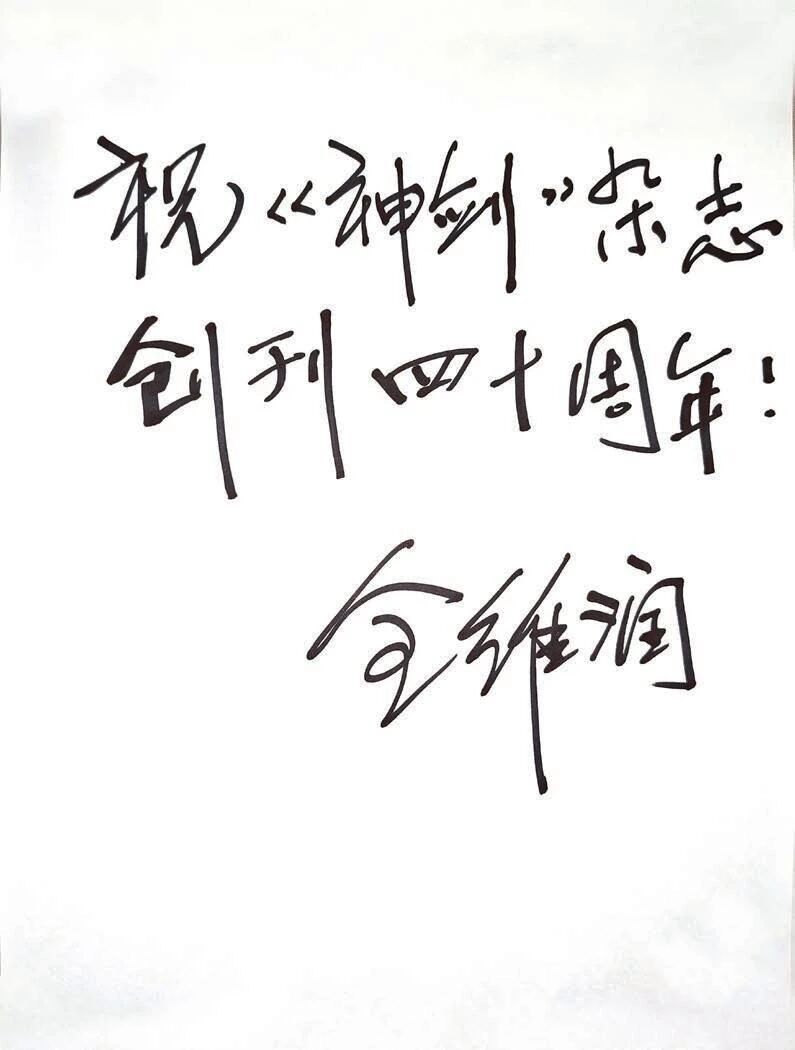 祝《神剑》杂志
创刊四十周年！
全维润